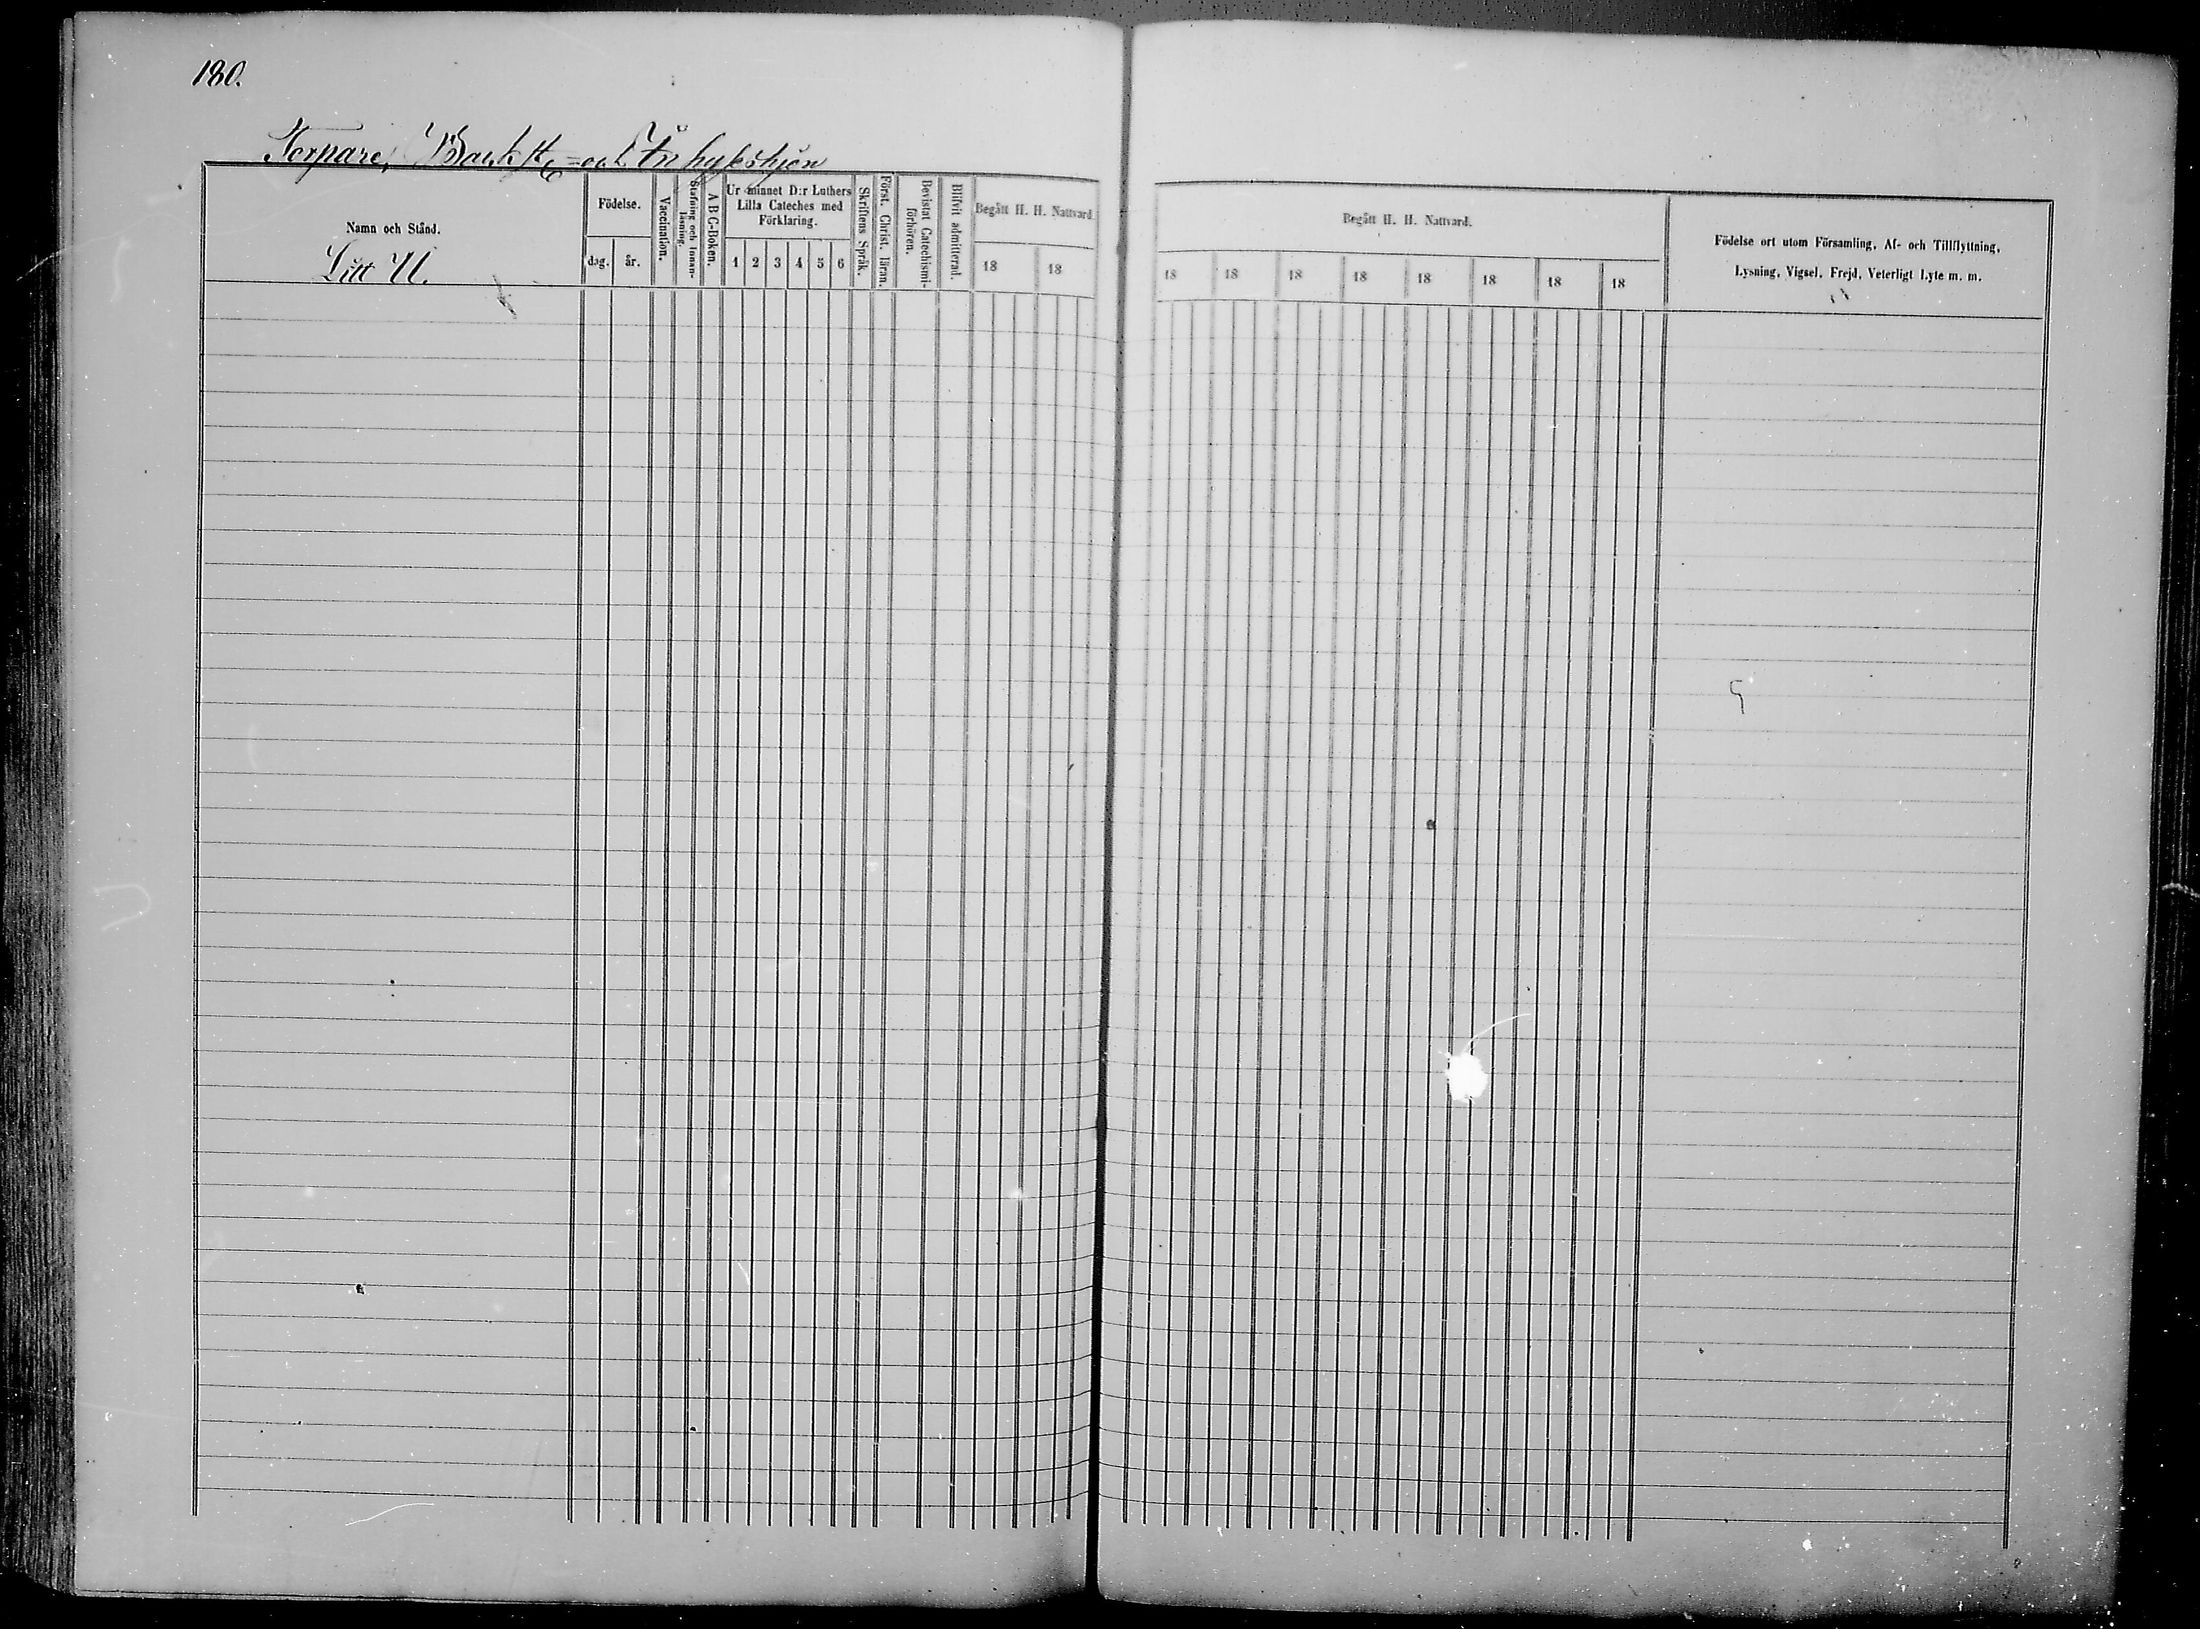 180.
Torpare, Backst. och Inhyseshjon
Namn och Stånd.
Litt U.
Födelse.
dag. år.
Vaccination.
Stafning och Innan-läsning.
A B C-Boken.
Ur minnet D:r Luthers
Lilla Cateches med
Förklaring.
1 2 3 4 5 6
Skriftens Språk.
Först. Christ. läran.
Bevistat Catechismi-förhören.
Blifvit admitterad.
Begått H. H. Nattvard.
18 18
Begått H. H. Nattvard.
18 18 18 18 18 18 18 18
Födelse ort utom Församling, Af- och Tillflyttning,
Lysning, Vigsel, Frejd, Veterligt Lyte m. m.